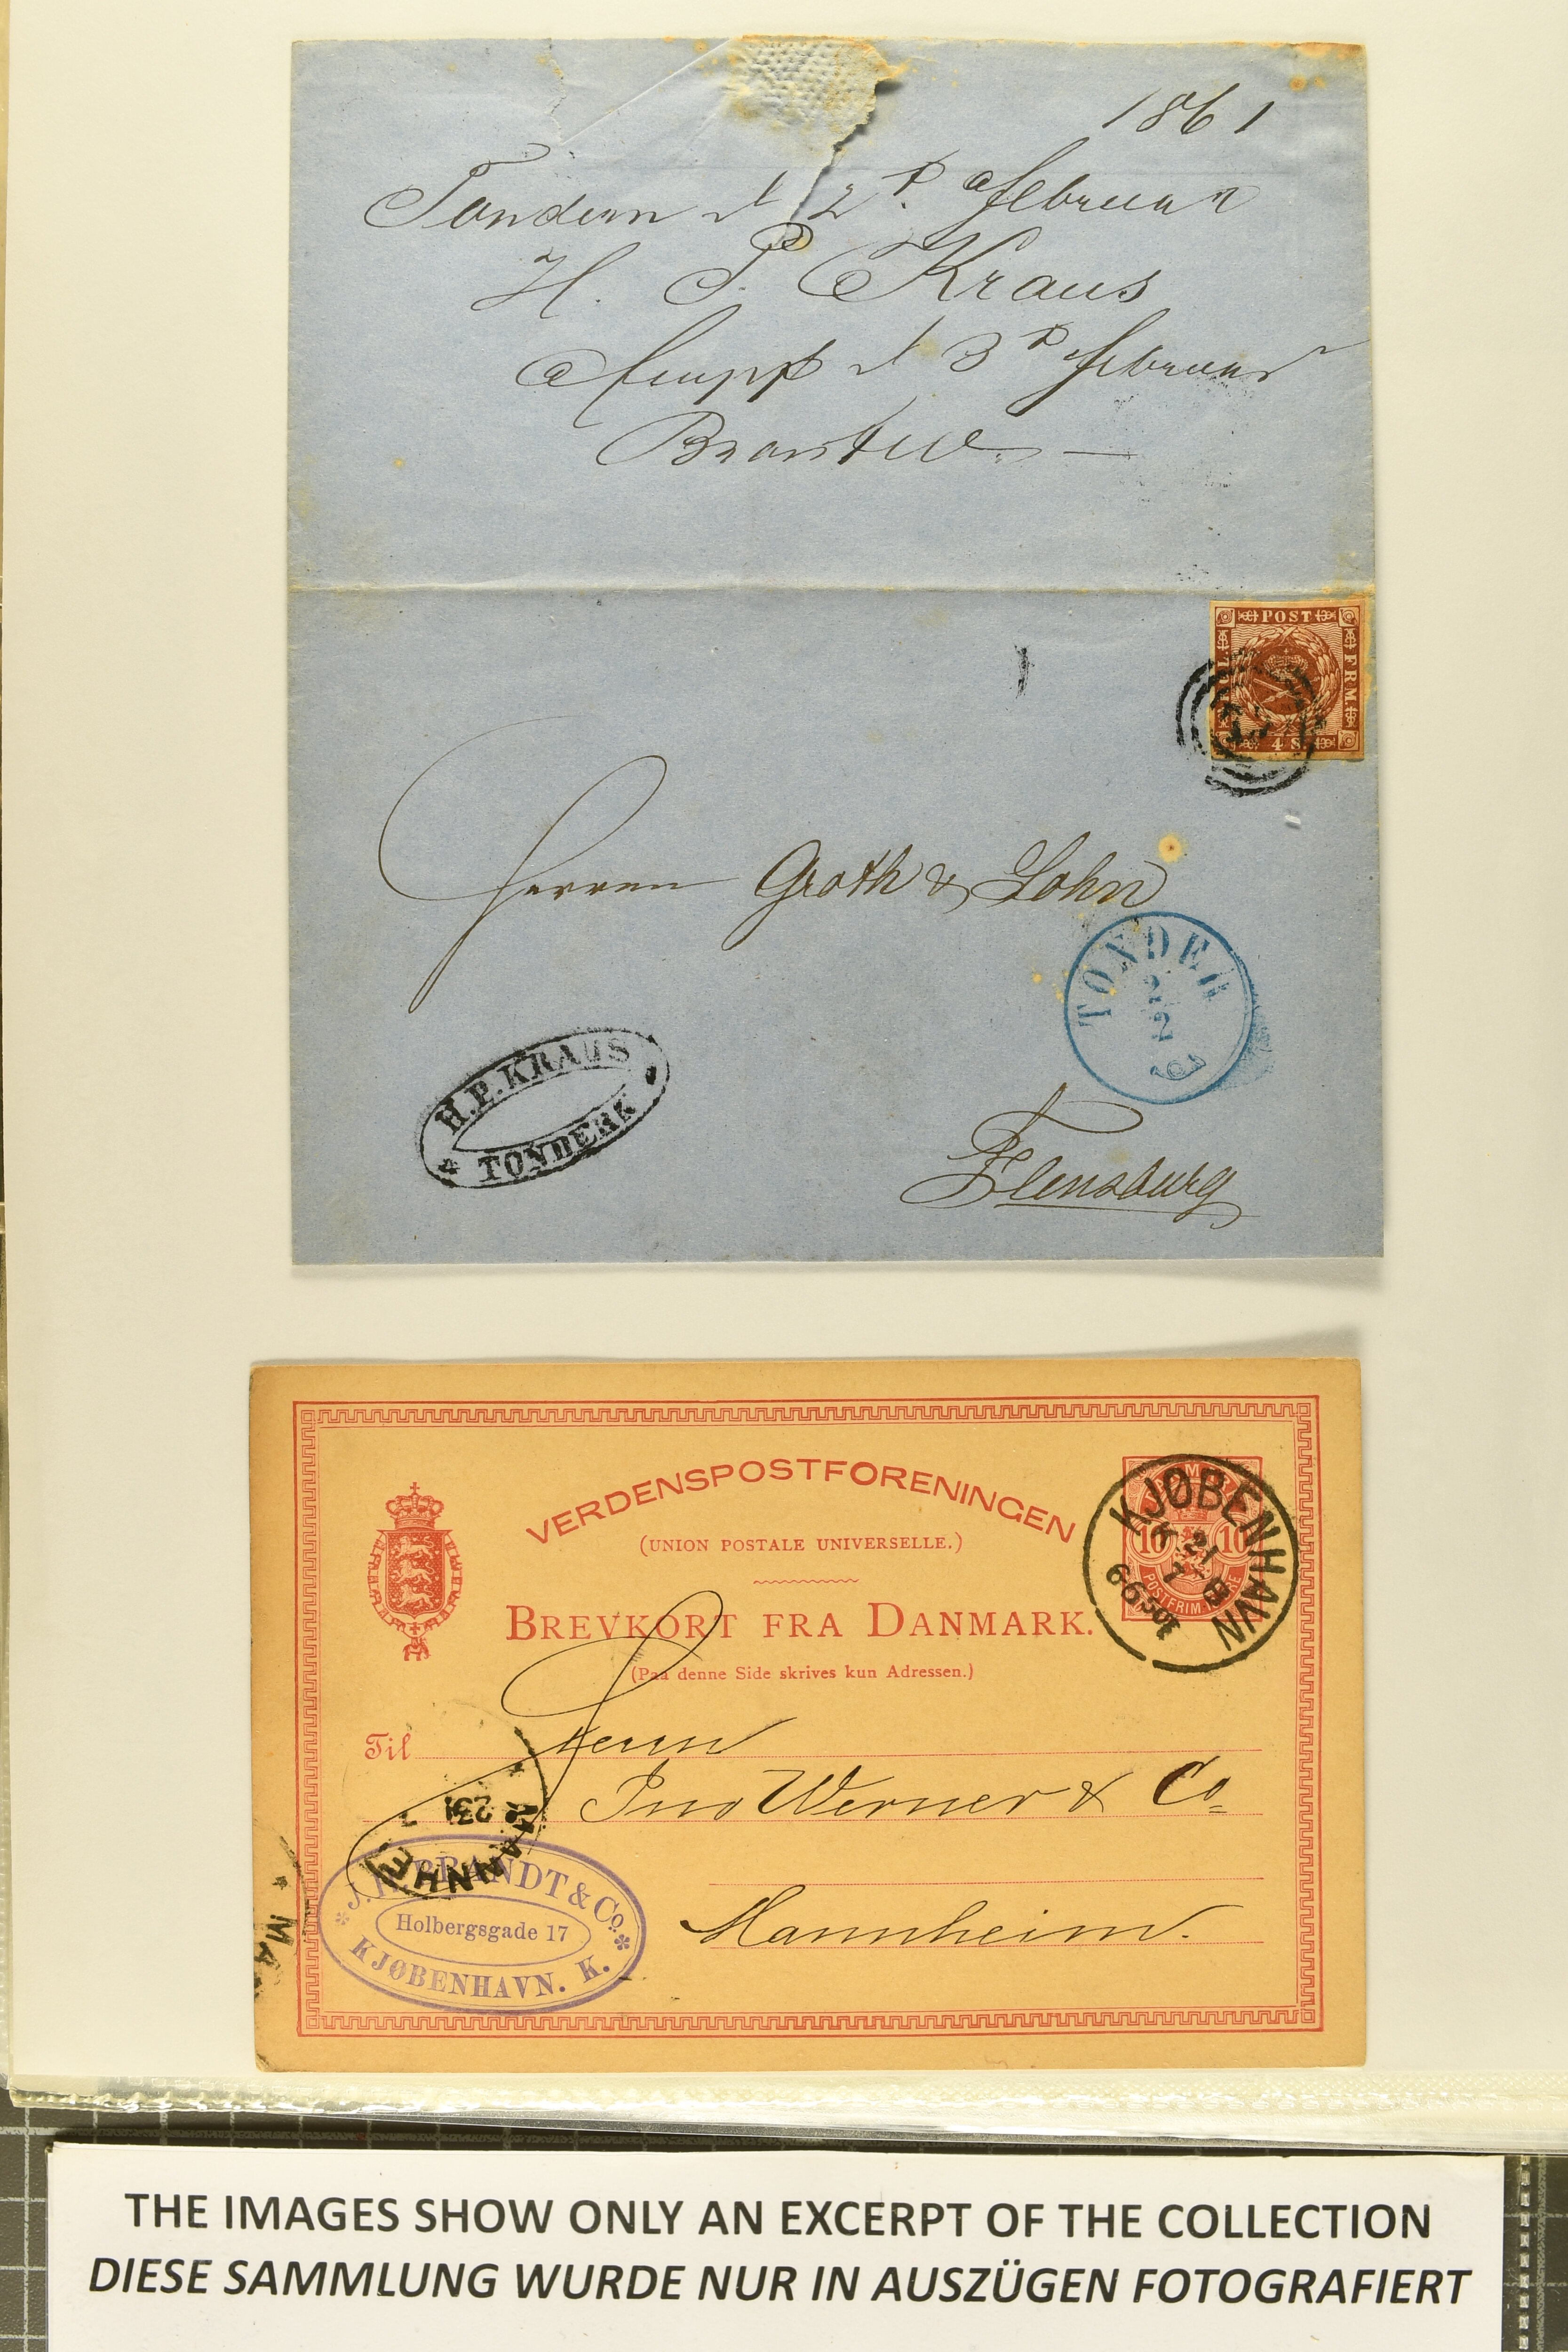 1861
Tondern d 2ᵈ. Februar
H. P. Kraus
Empf d 3ᵈ Februar
POST
FRM
4 S
Herren Groth & Sohn
TONDER
2
2
61
H.P. KRAUS
TONDERN
Flensburg
VERDENSPOSTFORENINGEN
(UNION POSTALE UNIVERSELLE.)
BREVKORT FRA DANMARK.
(Paa denne Side skrives kun Adressen.)
10 10
POSTFRIM. ØRE
KJØBENHAVN
K
21
Til Herrn
Jno Werner & Co
Mannheim.
MANNHE
23
BRANDT & Co.
Holbergsgade 17
KJØBENHAVN. K.
MA
THE IMAGES SHOW ONLY AN EXCERPT OF THE COLLECTION
DIESE SAMMLUNG WURDE NUR IN AUSZÜGEN FOTOGRAFIERT